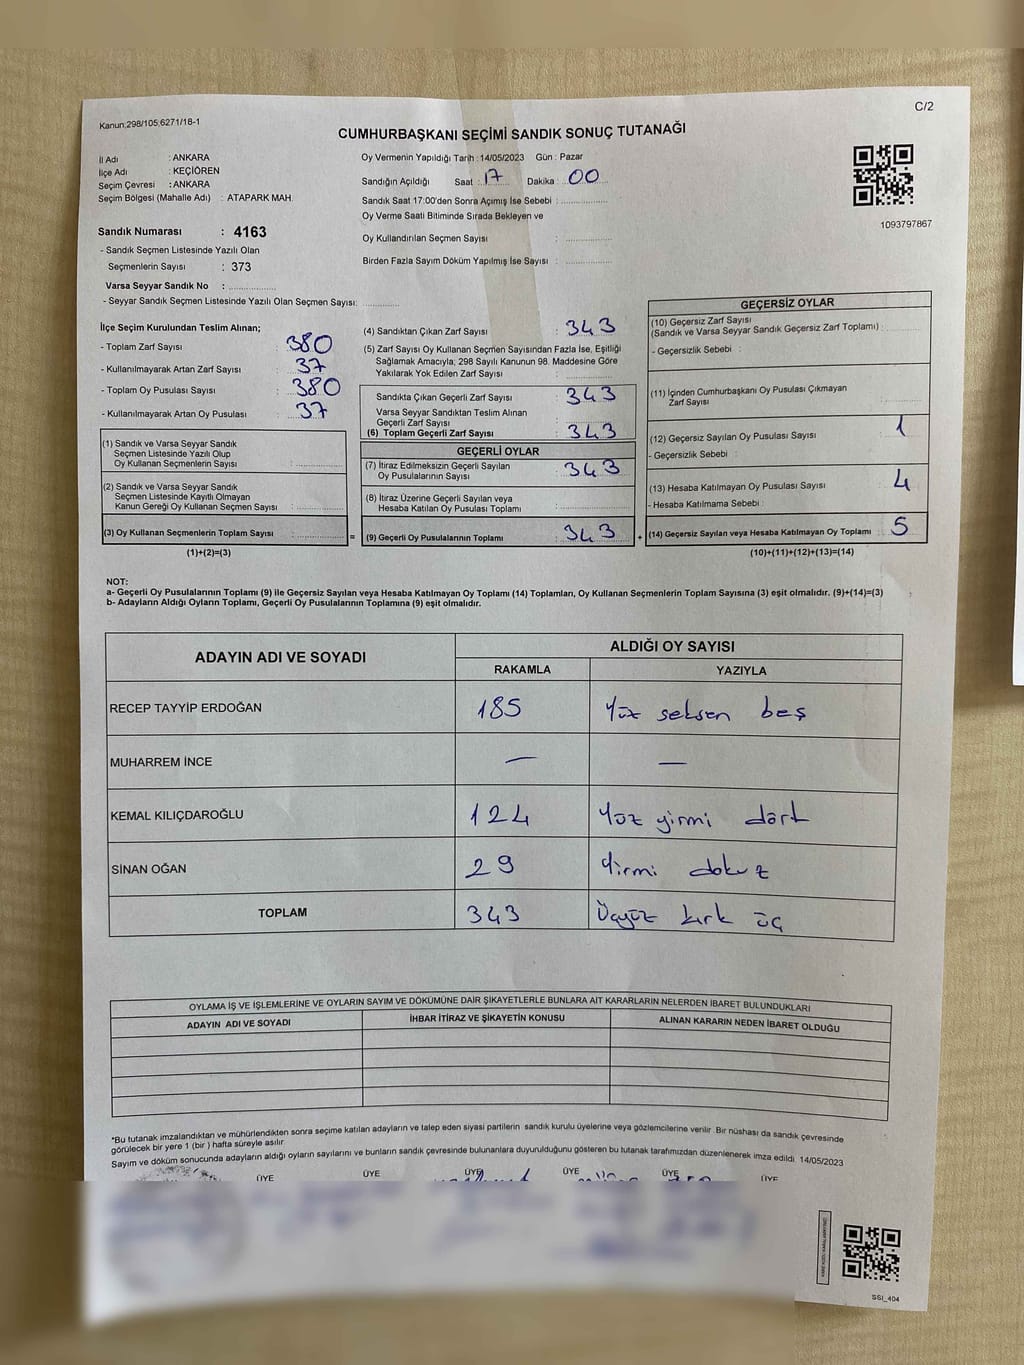 C/2
Kanun:298/105,6271/18-1
CUMHURBAŞKANI SEÇİMİ SANDIK SONUÇ TUTANAĞI
İl Adı : ANKARA
İlçe Adı : KEÇİÖREN
Seçim Çevresi : ANKARA
Seçim Bölgesi (Mahalle Adı) : ATAPARK MAH.
Sandık Numarası : 4163
- Sandık Seçmen Listesinde Yazılı Olan
Seçmenlerin Sayısı : 373
Varsa Seyyar Sandık No :
- Seyyar Sandık Seçmen Listesinde Yazılı Olan Seçmen Sayısı:
Oy Vermenin Yapıldığı Tarih : 14/05/2023 Gün : Pazar
Sandığın Açıldığı Saat : 17 Dakika : 00
Sandık Saat 17:00'den Sonra Açımış İse Sebebi :
Oy Verme Saati Bitiminde Sırada Bekleyen ve
Oy Kullandırılan Seçmen Sayısı :
Birden Fazla Sayım Döküm Yapılmış İse Sayısı :
1093797867
İlçe Seçim Kurulundan Teslim Alınan;
- Toplam Zarf Sayısı : 380
- Kullanılmayarak Artan Zarf Sayısı : 37
- Toplam Oy Pusulası Sayısı : 380
- Kullanılmayarak Artan Oy Pusulası : 37
(1) Sandık ve Varsa Seyyar Sandık
Seçmen Listesinde Yazılı Olup
Oy Kullanan Seçmenlerin Sayısı :
(2) Sandık ve Varsa Seyyar Sandık
Seçmen Listesinde Kayıtlı Olmayan
Kanun Gereği Oy Kullanan Seçmen Sayısı :
(3) Oy Kullanan Seçmenlerin Toplam Sayısı :
(1)+(2)=(3)
(4) Sandıktan Çıkan Zarf Sayısı : 343
(5) Zarf Sayısı Oy Kullanan Seçmen Sayısından Fazla İse, Eşitliği
Sağlamak Amacıyla; 298 Sayılı Kanunun 98. Maddesine Göre
Yakılarak Yok Edilen Zarf Sayısı :
Sandıkta Çıkan Geçerli Zarf Sayısı : 343
Varsa Seyyar Sandıktan Teslim Alınan
Geçerli Zarf Sayısı :
(6) Toplam Geçerli Zarf Sayısı : 343
GEÇERLİ OYLAR
(7) İtiraz Edilmeksizin Geçerli Sayılan
Oy Pusulalarının Sayısı : 343
(8) İtiraz Üzerine Geçerli Sayılan veya
Hesaba Katılan Oy Pusulası Toplamı :
= (9) Geçerli Oy Pusulalarının Toplamı : 343 +
GEÇERSİZ OYLAR
(10) Geçersiz Zarf Sayısı
(Sandık ve Varsa Seyyar Sandık Geçersiz Zarf Toplamı) :
- Geçersizlik Sebebi :
(11) İçinden Cumhurbaşkanı Oy Pusulası Çıkmayan
Zarf Sayısı :
(12) Geçersiz Sayılan Oy Pusulası Sayısı : 1
- Geçersizlik Sebebi :
(13) Hesaba Katılmayan Oy Pusulası Sayısı : 4
- Hesaba Katılmama Sebebi :
(14) Geçersiz Sayılan veya Hesaba Katılmayan Oy Toplamı : 5
(10)+(11)+(12)+(13)=(14)
NOT:
a- Geçerli Oy Pusulalarının Toplamı (9) ile Geçersiz Sayılan veya Hesaba Katılmayan Oy Toplamı (14) Toplamları, Oy Kullanan Seçmenlerin Toplam Sayısına (3) eşit olmalıdır. (9)+(14)=(3)
b- Adayların Aldığı Oyların Toplamı, Geçerli Oy Pusulalarının Toplamına (9) eşit olmalıdır.
ADAYIN ADI VE SOYADI ALDIĞI OY SAYISI
RAKAMLA YAZIYLA
RECEP TAYYİP ERDOĞAN 185 Yüz seksen beş
MUHARREM İNCE — —
KEMAL KILIÇDAROĞLU 124 Yüz yirmi dört
SİNAN OĞAN 29 Yirmi dokuz
TOPLAM 343 Üçyüz kırk üç
OYLAMA İŞ VE İŞLEMLERİNE VE OYLARIN SAYIM VE DÖKÜMÜNE DAİR ŞİKAYETLERLE BUNLARA AİT KARARLARIN NELERDEN İBARET BULUNDUKLARI
ADAYIN ADI VE SOYADI İHBAR İTİRAZ VE ŞİKAYETİN KONUSU ALINAN KARARIN NEDEN İBARET OLDUĞU
*Bu tutanak imzalandıktan ve mühürlendikten sonra seçime katılan adayların ve talep eden siyasi partilerin sandık kurulu üyelerine veya gözlemcilerine verilir. Bir nüshası da sandık çevresinde
görülecek bir yere 1 (bir ) hafta süreyle asılır.
Sayım ve döküm sonucunda adayların aldığı oyların sayılarını ve bunların sandık çevresinde bulunanlara duyurulduğunu gösteren bu tutanak tarafımızdan düzenlenerek imza edildi. 14/05/2023
ÜYE ÜYE ÜYE ÜYE ÜYE ÜYE
SSI_404